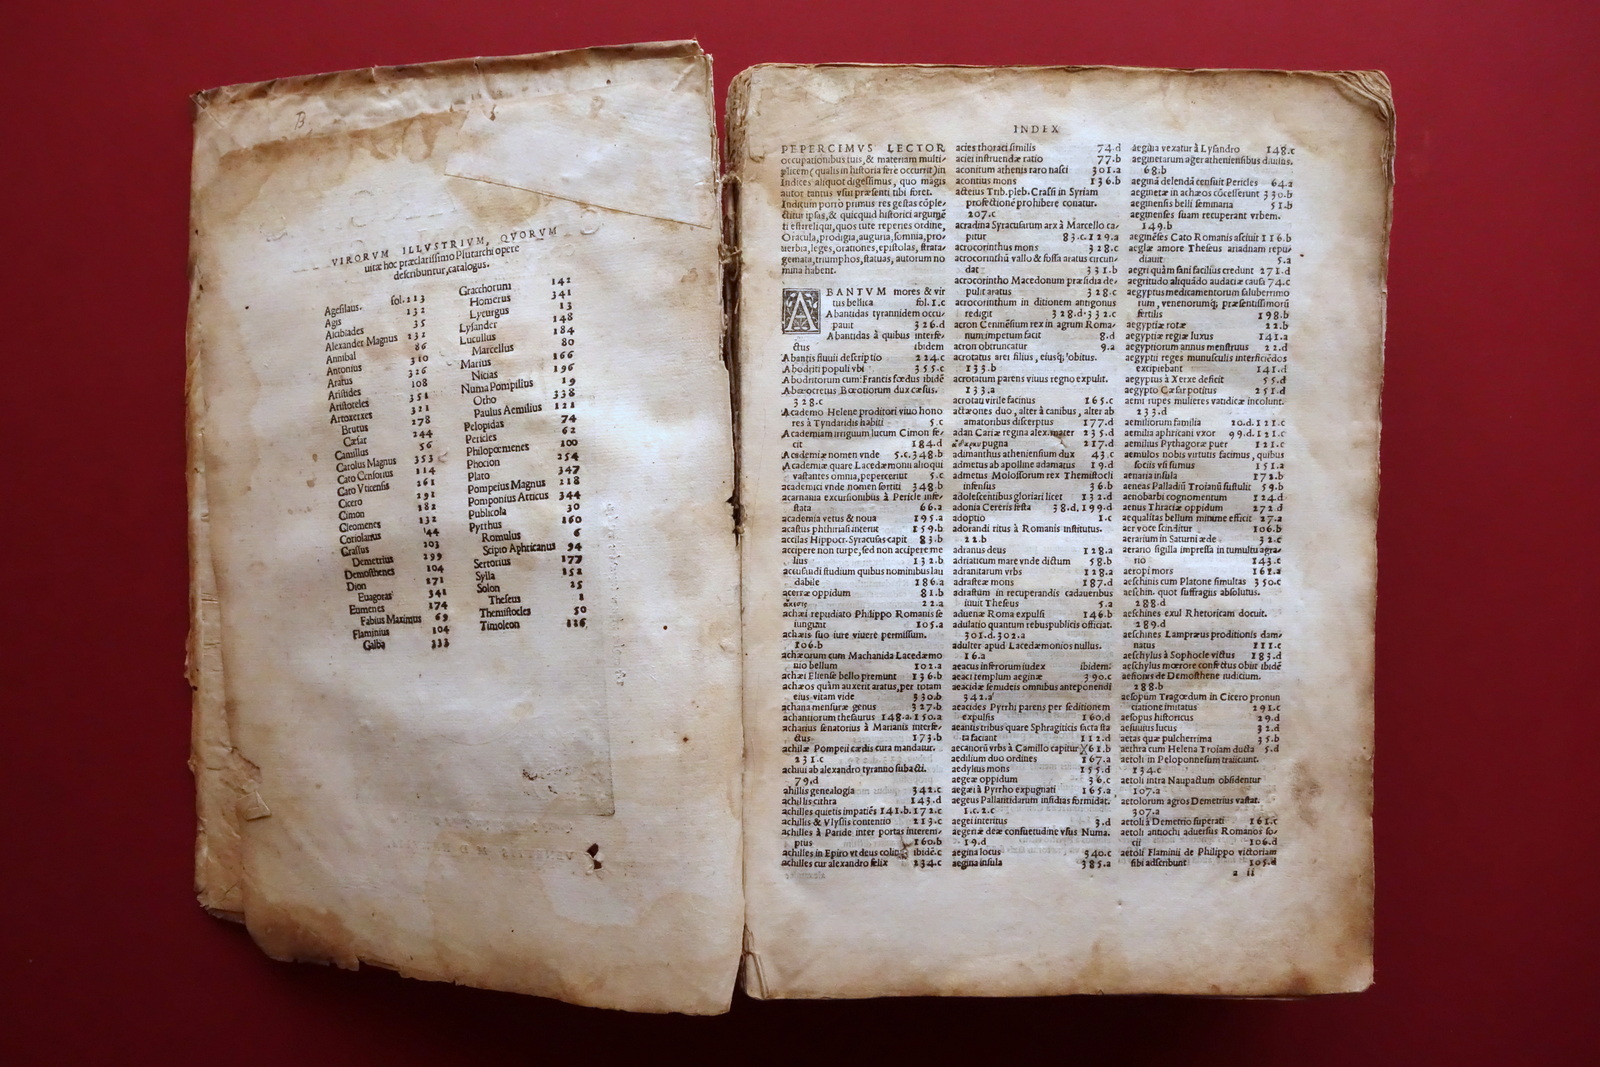 B
VIRORVM ILLVSTRIVM, QVORVM
uitæ hoc præclarissimo Plutarchi opere
describuntur, catalogus.
Agesilaus. fol. 113
Agis 132
Alcibiades 35
Alexander Magnus 131
Annibal 86
Antonius 310
Aratus 326
Aristides 108
Aristoteles 351
Artoxerxes 321
Brutus 178
Cæsar 244
Camillus 56
Carolus Magnus 353
Cato Censorius 114
Cato Vticensis 261
Cicero 291
Cimon 182
Cleomenes 132
Coriolanus 44
Crassus 203
Demetrius 299
Demosthenes 104
Dion 171
Euagoras 341
Eumenes 174
Fabius Maximus 69
Flaminius 104
Galba 333
Gracchorum 142
Homerus 341
Lycurgus 13
Lysander 148
Lucullus 184
Marcellus 80
Marius 166
Nicias 196
Numa Pompilius 19
Otho 338
Paulus Aemilius 121
Pelopidas 74
Pericles 62
Philopœmenes 100
Phocion 254
Plato 347
Pompeius Magnus 218
Pomponius Atticus 344
Publicola 30
Pyrrhus 160
Romulus 6
Scipio Aphricanus 94
Sertorius 177
Sylla 152
Solon 25
Theseus 1
Themistocles 50
Timoleon 126
INDEX
PEPERCIMVS LECTOR
occupationibus tuis, & materiam multi-
plicem (qualis in historia fere occurrit) in
Indices aliquot digessimus, quo magis
autor tantus vsui præsenti tibi foret.
Indicum porrò primus res gestas cōple-
ctitur ipsas, & quicquid historici argumē
ti est: reliqui, quos tute reperies ordine,
Oracula, prodigia, auguria, somnia, pro-
uerbia, leges, orationes, epistolas, strata-
gemata, triumphos, statuas, autorum no
mina habent.
ABANTVM mores & vir
tus bellica. fol. 1.c
Abantidas tyrannidem occu-
pauit 326.d
Abantidas à quibus interfe-
ctus ibidem
Abantis fluuii descriptio 224.c
Abodriti populi vbi 355.c
Aboditorum cum Francis fœdus ibidē
Abœocretus Bœotiorum dux cæsus.
328.c
Academo Helene proditori viuo hono
res à Tyndaridis habiti 5.c
Academiam irriguum lucum Cimon fe-
cit 184.d
Academiæ nomen vnde 5.c.348.b
Academiæ quare Lacedæmonii alioqui
vastantes omnia, pepercerint 5.c
academici vnde nomen sortiti 348.b
acarnania excursionibus à Pericle infe-
stata 66.a
academia vetus & noua 195.a
acastus phthirasi interiit 159.b
accilas Hippocr. Syracusas capit 83.b
accipere non turpe, sed non accipere me
lius 132.b
accusandi studium quibus nominibus lau
dabile 186.a
acerræ oppidum 81.b
22.a
achæi repudiato Philippo Romanis se
iungunt 105.a
achæis suo iure viuere permissum.
106.b
achæorum cum Machanida Lacedæmo
nio bellum 102.a
achæi Eliense bello premunt 136.b
achæos quàm auxerit aratus, per totam
eius vitam vide 330.b
achana mensuræ genus 327.b
achantiorum thesaurus 148.a.150.a
acharius senatorius à Marianis interfe-
ctus 173.b
achilæ Pompeii cædis cura mandatur.
231.c
achiui ab alexandro tyranno subacti.
79.d
ahillis genealogia 342.c
achillis cithra 143.d
achilles quietis impatiēs 141.b.172.c
achillis & Vlyssis contentio 213.c
achilles à Paride inter portas interem-
ptus 160.b
achilles in Epiro vt deus colit. ibidē.c
achilles cur alexandro felix 234.c
acies thoraci similis 74.d
aciei instruendæ ratio 77.b
aconitum athenis raro nasci 301.a
acontius mons 136.b
acteius Trib. pleb. Crassi in Syriam
profectionē prohibere conatur.
207.c
acradina Syracusarum arx à Marcello ca-
pitur 83.c.129.a
acrocorinthus mons 328.c
acrocorinthū vallo & fossa aratus circun-
dat 331.b
acrocorintho Macedonum præsidia de-
pulit aratus 328.c
acrocorinthum in ditionem antigonus
redigit 328.d.332.c
acron Ceninēsium rex in agrum Roma-
num impetum facit 8.d
acron obtruncatur 9.a
acrotatus arei filius, eiusq́; obitus.
133.b
acrotatum parens viuus regno expulit.
133.a
acrotau virile facinus 165.c
actæones duo, alter à canibus, alter ab
amatoribus discerptus 177.d
adan Cariæ regina alex. mater 235.d
pugna 217.d
adimanthus atheniensium dux 43.c
admetus ab apolline adamatus 19.d
admetus Molossorum rex Themistocli
infensus 36.b
adolescentibus gloriari licet 132.d
adonia Cereris festa 38.d.199.d
adoptio 1.c
adorandi ritus à Romanis institutus.
22.b
adranus deus 128.a
adriaticum mare vnde dictum 58.b
adranitarum vrbs 128.a
adrasteæ mons 187.d
adrastum in recuperandis cadaueribus
iuuit Theseus 5.a
aduenæ Roma expulsi 146.b
adulatio quantum rebuspublicis officiat.
301.d.302.a
adulter apud Lacedæmonios nullus.
16.a
aeacus inferorum iudex ibidem:
aeaci templum aeginæ 390.c
aeacidæ semideis omnibus anteponendi
342.a
aeacides Pyrrhi parens per seditionem
expulsus 160.d
aeantis tribus quare Sphragiticis sacra sta
ta faciant 112.d
aecanorū vrbs à Camillo capitur X61.b
aedilium duo ordines 167.a
aedylius mons 155.d
aegeæ oppidum 36.c
aegæi à Pyrrho expugnati 165.a
aegeus Pallantidarum insidias formidat.
1.c.2.c
aegei interitus 3.d
aegeriæ deæ consuetudine vsus Numa.
19.d
aegina locus 340.c
aegina insula 385.a
aegina vexatur à Lysandro 148.c
aeginetarum ager atheniensibus diuisus.
68.b
aeginā delendā censuit Pericles 64.a
aeginetæ in achæos cōcesserunt 330.b
aeginensis belli seminaria 51.b
aeginenses suam recuperant vrbem.
149.b
aeginēses Cato Romanis asciuit 116.b
aeglæ amore Theseus ariadnam repu-
diauit 5.a
aegri quàm sani facilius credunt 271.d
aegritudo aliquādo audaciæ causa 74.c
aegyptus medicamentorum saluberrimo
rum, venenorumq́; præsentissimorū
fertilis 198.b
aegyptiæ rotæ 22.b
aegyptiæ regiæ luxus 141.a
aegyptiorum annus menstruus 22.d
aegyptii reges munusculis interficiēdos
excipiebant 141.d
aegyptus à Xerxe deficit 55.d
aegypto Cæsar potitus 251.d
aemi rupes mulieres vatidicæ incolunt.
233.d
aemiliorum familia 20.d.121.c
aemilia aphricani vxor 99.d.121.c
aemilius Pythagoræ puer 121.c
aemulos nobis virtutis facimus, quibus
sociis vsi sumus 151.a
aenaria insula 172.b
aeneas Palladiū Troianū sustulit 59.b
aenobarbi cognomentum 124.d
aenus Thraciæ oppidum 272.d
aequalitas bellum minime efficit 27.a
aer voce scinditur 106.b
aerarium in Saturni æde 32.c
aerario sigilla impressa in tumultu agra-
rio 143.c
aeropi mors 162.a
aeschinis cum Platone simultas 350.c
aeschin. quot suffragiis absolutus.
288.d
aeschines exul Rhetoricam docuit.
289.d
aeschines Lampræus proditionis dam-
natus 111.c
aeschylus à Sophocle victus 183.d
aeschylus mœrore confectus obiit ibidē
aesionis de Demosthene iudicium.
288.b
aesopum Tragœdum in Cicero pronun
ciatione imitatus 291.c
aesopus historicus 29.d
aesuuius lucus 32.d
aetas quæ pulcherrima 35.b
aethra cum Helena Troiam ducta 5.d
aetoli in Peloponnesum traiiciunt.
134.c
aetoli intra Naupactum obsidentur
107.a
aetolorum agros Demetrius vastat.
307.a
aetoli à Demetrio superati 161.c
aetoli antiochi aduersus Romanos so-
cii 106.d
aetoli Flaminii de Philippo victoriam
sibi adscribunt 105.d
a ii